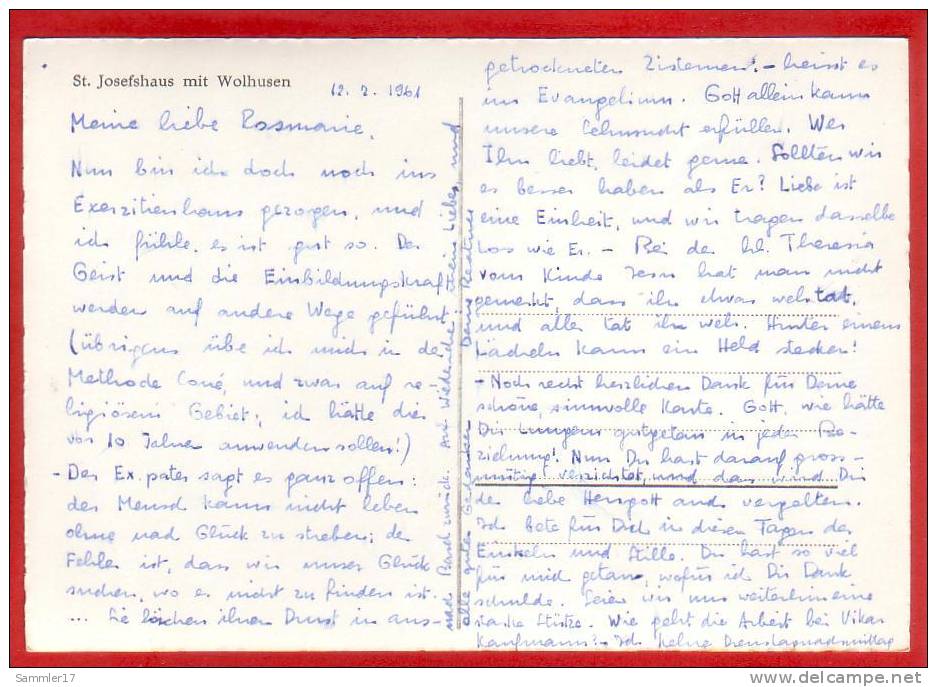 St. Josefshaus mit Wolhusen
12. 2. 1961
Meine liebe Rosmarie,
Nun bin ich doch noch ins
Exerzitienhaus gezogen, und
ich fühle, es ist gut so. Der
Geist und die Einbildungskraft
werden auf andere Wege geführt.
(übrigens übe ich mich in der
Methode Coué, und zwar auf re-
ligiösem Gebiet; ich hätte dies
vor 10 Jahren anwenden sollen!)
- Der Ex. pater sagt es ganz offen:
der Mensch kann nicht leben
ohne nach Glück zu streben; der
Fehler ist, dass wir unser Glück
suchen, wo es nicht zu finden ist.
... Sie löschen ihren Durst in aus-
getrockneten Zisternen! - heisst es
im Evangelium. Gott allein kann
unsere Sehnsucht erfüllen. Wer
Ihn liebt, leidet gerne. Sollten wir
es besser haben als Er? Liebe ist
eine Einheit, und wir tragen dasselbe
Los wie Er. - Bei der hl. Theresia
vom Kinde Jesu hat man nicht
gemerkt, dass ihr etwas weh tat,
und alles tat ihr weh. Hinter einem
Lächeln kann ein Held stecken!
- Noch recht herzlichen Dank für Deine
schöne, sinnvolle Karte. Gott, wie hätte
Dir Lungern gutgetan in jeder Be-
ziehung! Nun Du hast darauf gross-
mütig verzichtet, und das wird Dir
der liebe Herrgott auch vergelten.
Ich bete für Dich in diesen Tagen der
Einkehr und Stille. Du hast so viel
für mich getan, wofür ich Dir Dank
schulde. Seien wir uns weiterhin eine
starke Stütze. Wie geht die Arbeit bei Vikar
Kaufmann? - Ich kehre Dienstagnachmittag
nach Basel zurück. Auf Wiedersehen, mein Liebes, und
alle guten Gedanken Deine
Sammler17
http://www.delcampe.net